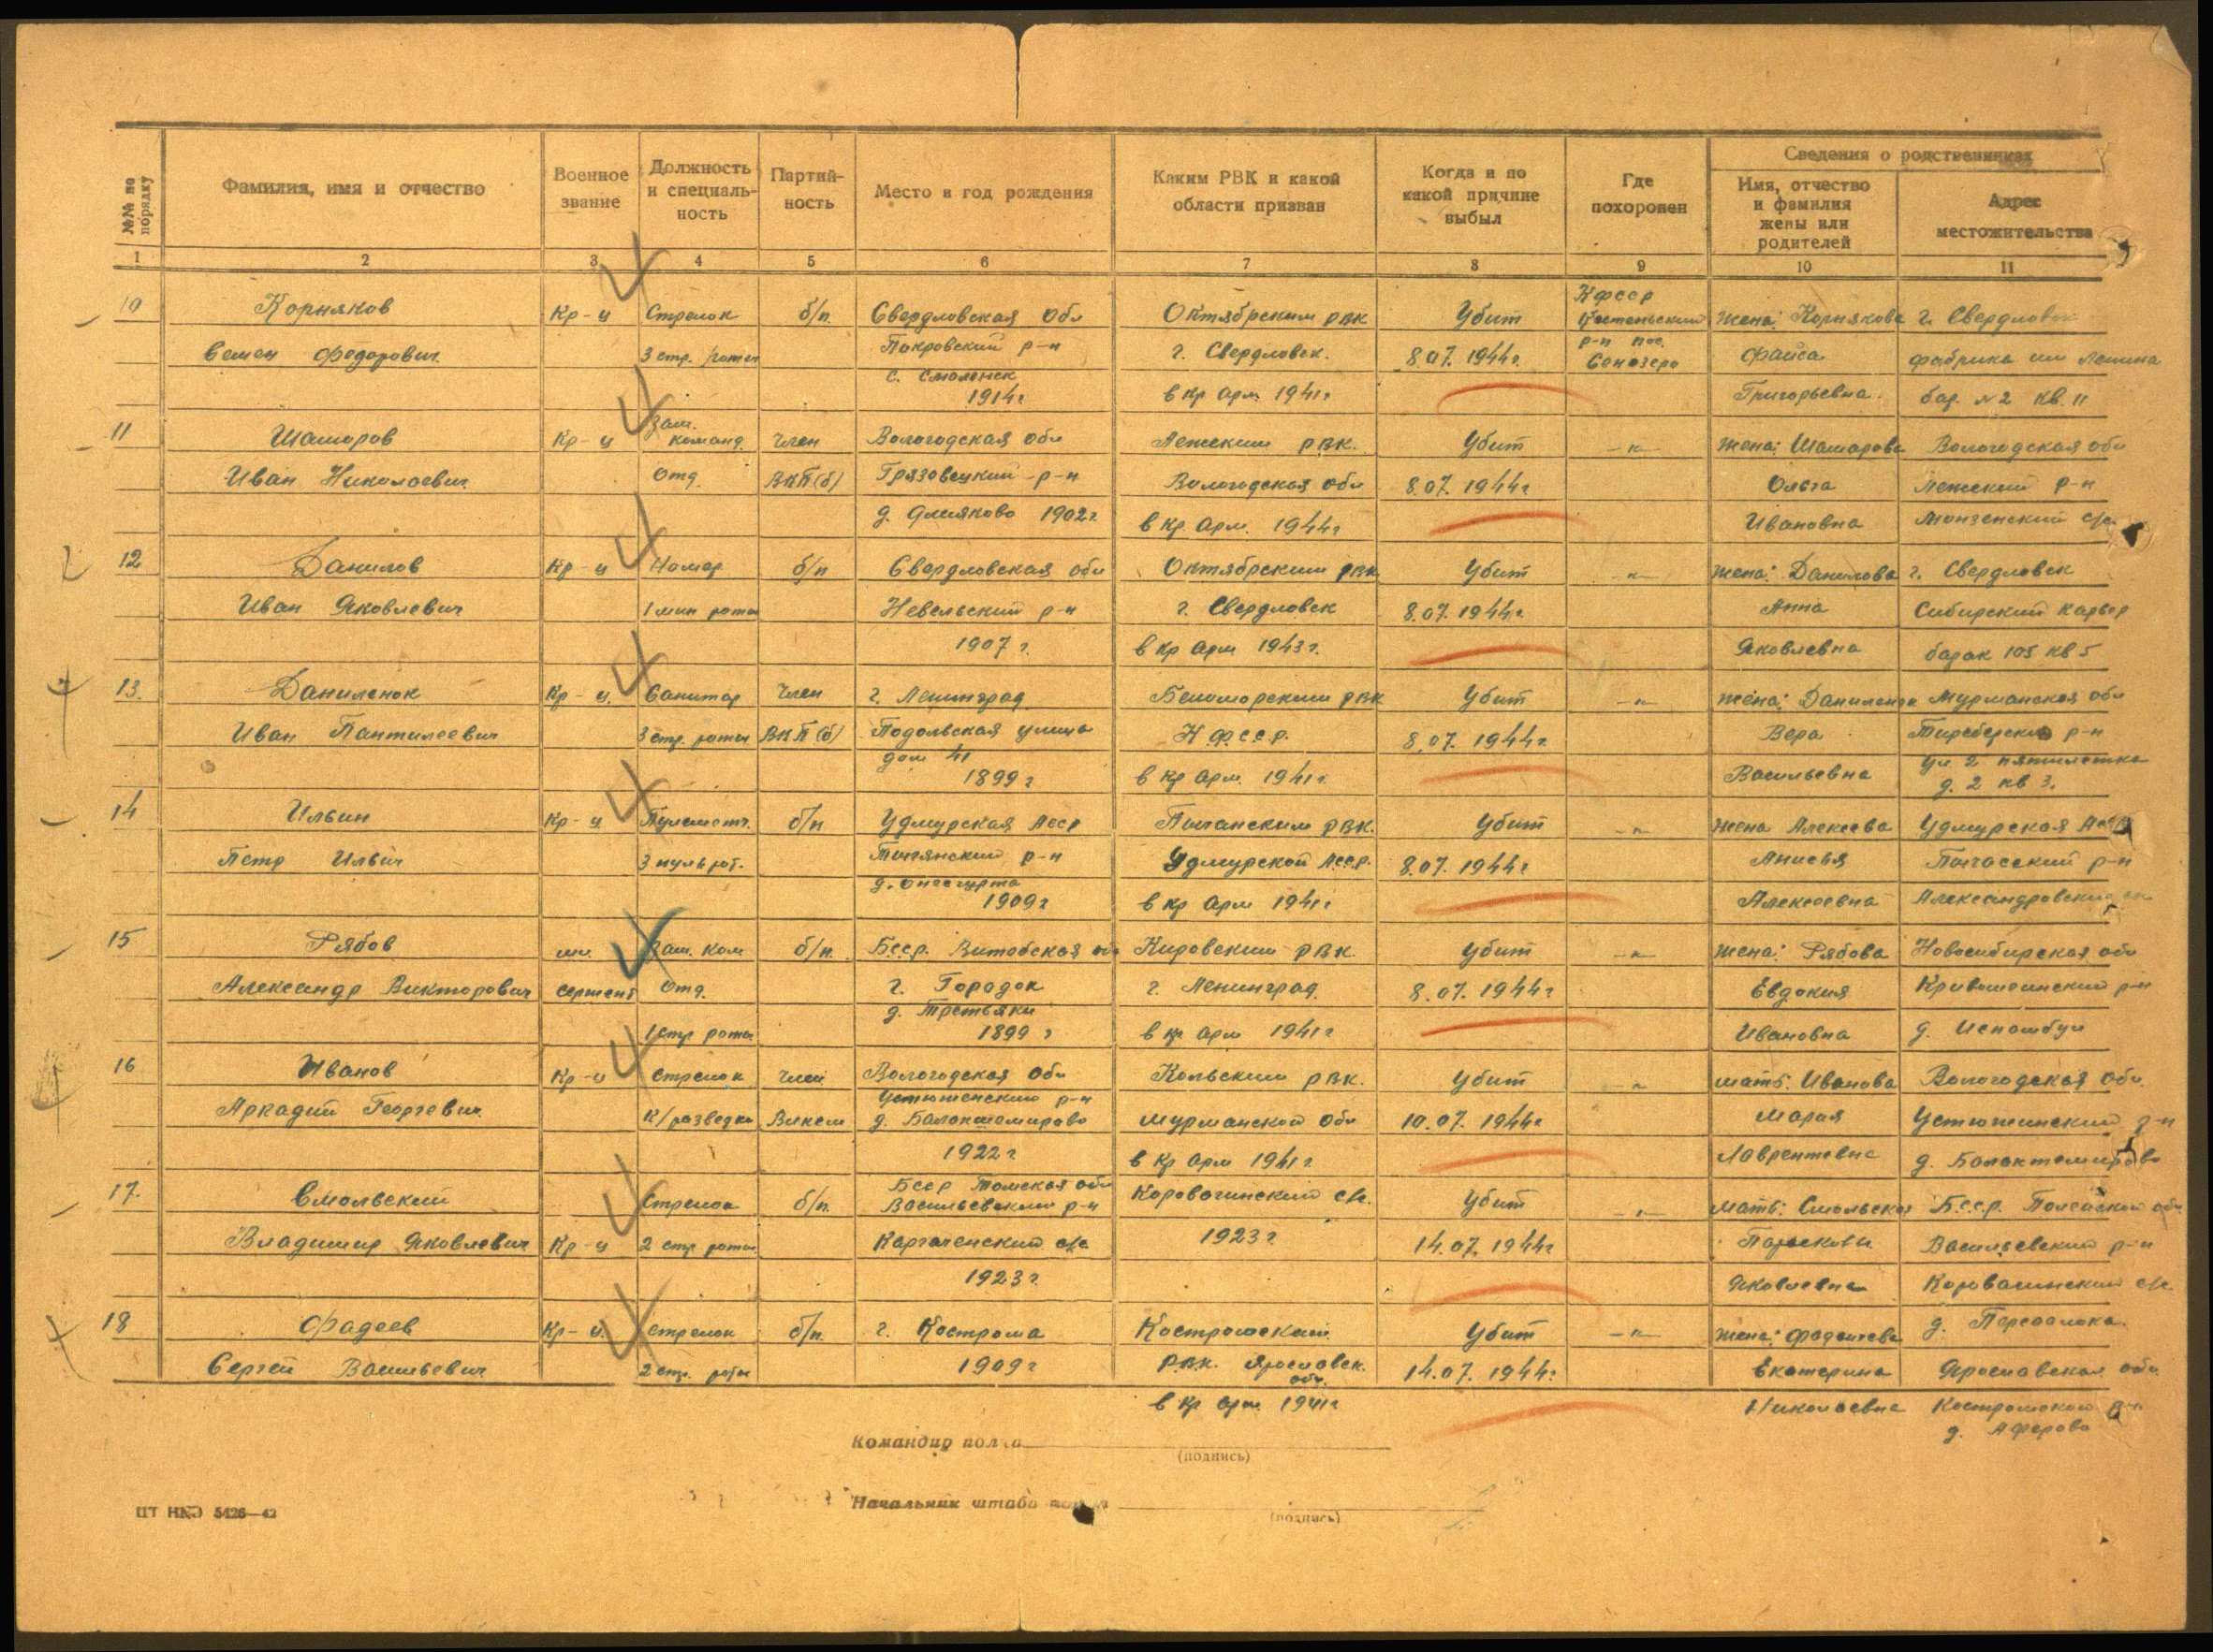 №№ по порядку
Фамилия, имя и отчество
Военное звание
Должность и специальность
Партийность
Место и год рождения
Каким РВК и какой области призван
Когда и по какой причине выбыл
Где похоронен
Сведения о родственниках
Имя, отчество и фамилия жены или родителей
Адрес местожительства
1 2 3 4 5 6 7 8 9 10 11
10 Корняков Кр-ц Стрелок б/п. Свердловская обл Октябрьским РВК Убит КФССР жена: Корнякова г. Свердловск
Семен Федорович 3 стр. роты Покровский р-н г. Свердловск. 8.07.1944г. р-н пос. Фаиса фабрика им Ленина
с. Смоленск
1914г в кр арм 1941г Григорьевна бар. №2 кв. 11
11 Шаморов Кр-ц Зам. команд. Член Вологодская обл Лежским РВК. Убит -"- жена: Шаморова Вологодская обл
Иван Николаевич отд. ВКП(б) Грязовецкий р-н Вологодская обл 8.07.1944г Ольга Лежский р-н
д. 1902г в кр арм. 1944г Ивановна Монзенский с/с
12 Данилов Кр-ц Номер б/п Свердловская обл Октябрьским РВК Убит -"- жена: Данилова г. Свердловск
Иван Яковлевич 1 мин роты Невельский р-н г. Свердловск 8.07.1944г. Анна Сибирский карьер
1907 г. в кр арм 1943г. Яковлевна барак 105 кв 5
13. Даниленок Кр-ц. Санитар Член г. Ленинград Беломорским РВК Убит -"- жена: Даниленок Мурманская обл
Иван Пантилеевич 3 стр. роты ВКП(б) Подольская улица К.Ф.С.С.Р. 8.07.1944г. Вера р-н
дом 41 ул 2 пятилетка
1899г в кр арм. 1941г. Васильевна д. 2 кв 3.
14 Ильин Кр-ц Пулеметч. б/п Удмурская АССР РВК. Убит -"- жена Алексеева Удмурская АССР
Петр Ильич 3 пуль рот. р-н Удмурской АССР. 8.07.1944г Анисья р-н
д.
1909г в кр арм 1941г Алексеевна Александровский
15 Рябов мл. Зам. ком б/п. БССР. Витебская Кировским РВК Убит -"- жена: Рябова Новосибирская обл
Александр Викторович сержант отд. г. Городок г. Ленинград 8.07.1944г Евдокия Кривошеинский р-н
д. Третьяки
1 стр роты 1899 г в кр арм 1941г Ивановна д.
16 Иванов Кр-ц Стрелок Член Вологодская обл Кольским РВК. Убит -"- мать: Иванова Вологодская обл.
Аркадий Георгевич К/разведки Устюженский р-н Мурманской обл 10.07.1944г Мария Устюженский р-н
д.
1922г в кр арм 1941г Лаврентевна д.
17. Смольский Стрелок б/п. БССР обл с/с. Убит мать: Смольская Б.С.С.Р. обл
Василевский р-н
Владимир Яковлевич Кр-ц 2 стр роты с/с 1923г 14.07.1944г Василевский р-н
1923г. Яковлевна с/с.
18 Фадеев Кр-ц. Стрелок б/п. г. Кострома Костромским Убит -"- жена: д.
Сергей Васильевич 2 стр. роты 1909г РВК. Ярославск. обл. 14.07.1944г. Екатерина Ярославская обл.
в кр арм 1941г Николаевна Костромской р-н
д.
Командир полка
(подпись)
Начальник штаба
(подпись)
ЦТ НКО 5426—42